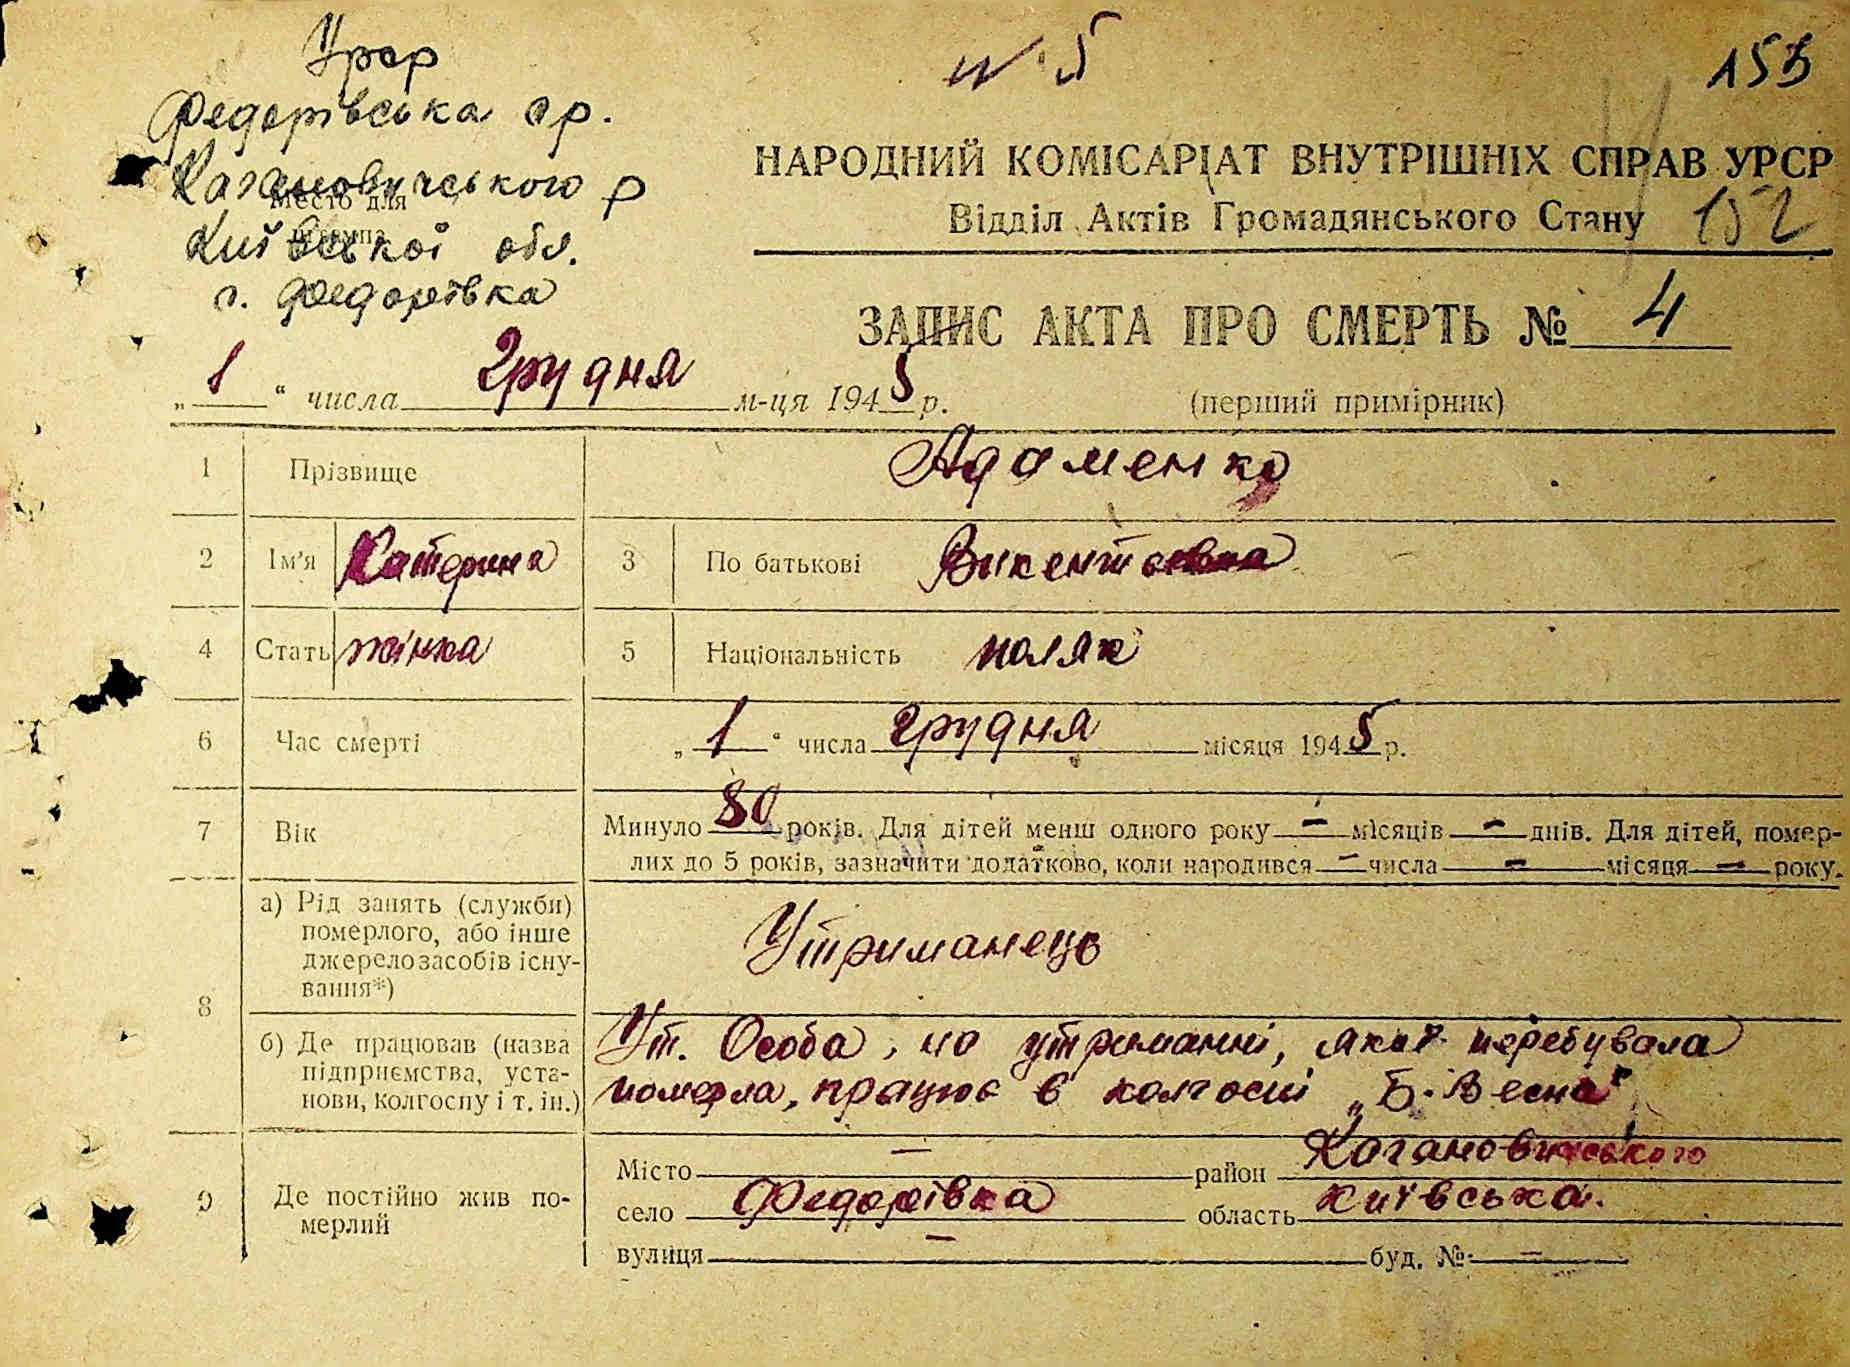 Урср
Федорівська ср.
Кагановичського р
Место для
штампа
Київської обл.
с. Федорівка
№ 5
153
НАРОДНИЙ КОМІСАРІАТ ВНУТРІШНІХ СПРАВ УРСР
Відділ Актів Громадянського Стану
152
ЗАПИС АКТА ПРО СМЕРТЬ № 4
„1“ числа Грудня м-ця 1945 р.
(перший примірник)
1 Прізвище Адаменко
2 Ім'я Катерина 3 По батькові Викентовна
4 Стать жінка 5 Національність поляк
6 Час смерті „1“ числа грудня місяця 1945 р.
7 Вік Минуло 80 років. Для дітей менш одного року — місяців — днів. Для дітей, помер-
лих до 5 років, зазначити додатково, коли народився — числа — місяця — року.
8 а) Рід занять (служби)
померлого, або інше
джерело засобів існу-
вання*)
Утриманець
б) Де працював (назва
підприємства, уста-
нови, колгоспу і т. ін.)
Ут. Особа, на утриманні, якої перебувала
померла, працює в колгоспі „Б. Весна"
9 Де постійно жив по-
мерлий
Місто — район Кагановичського
село Федорівка область Київська.
вулиця — буд. № —